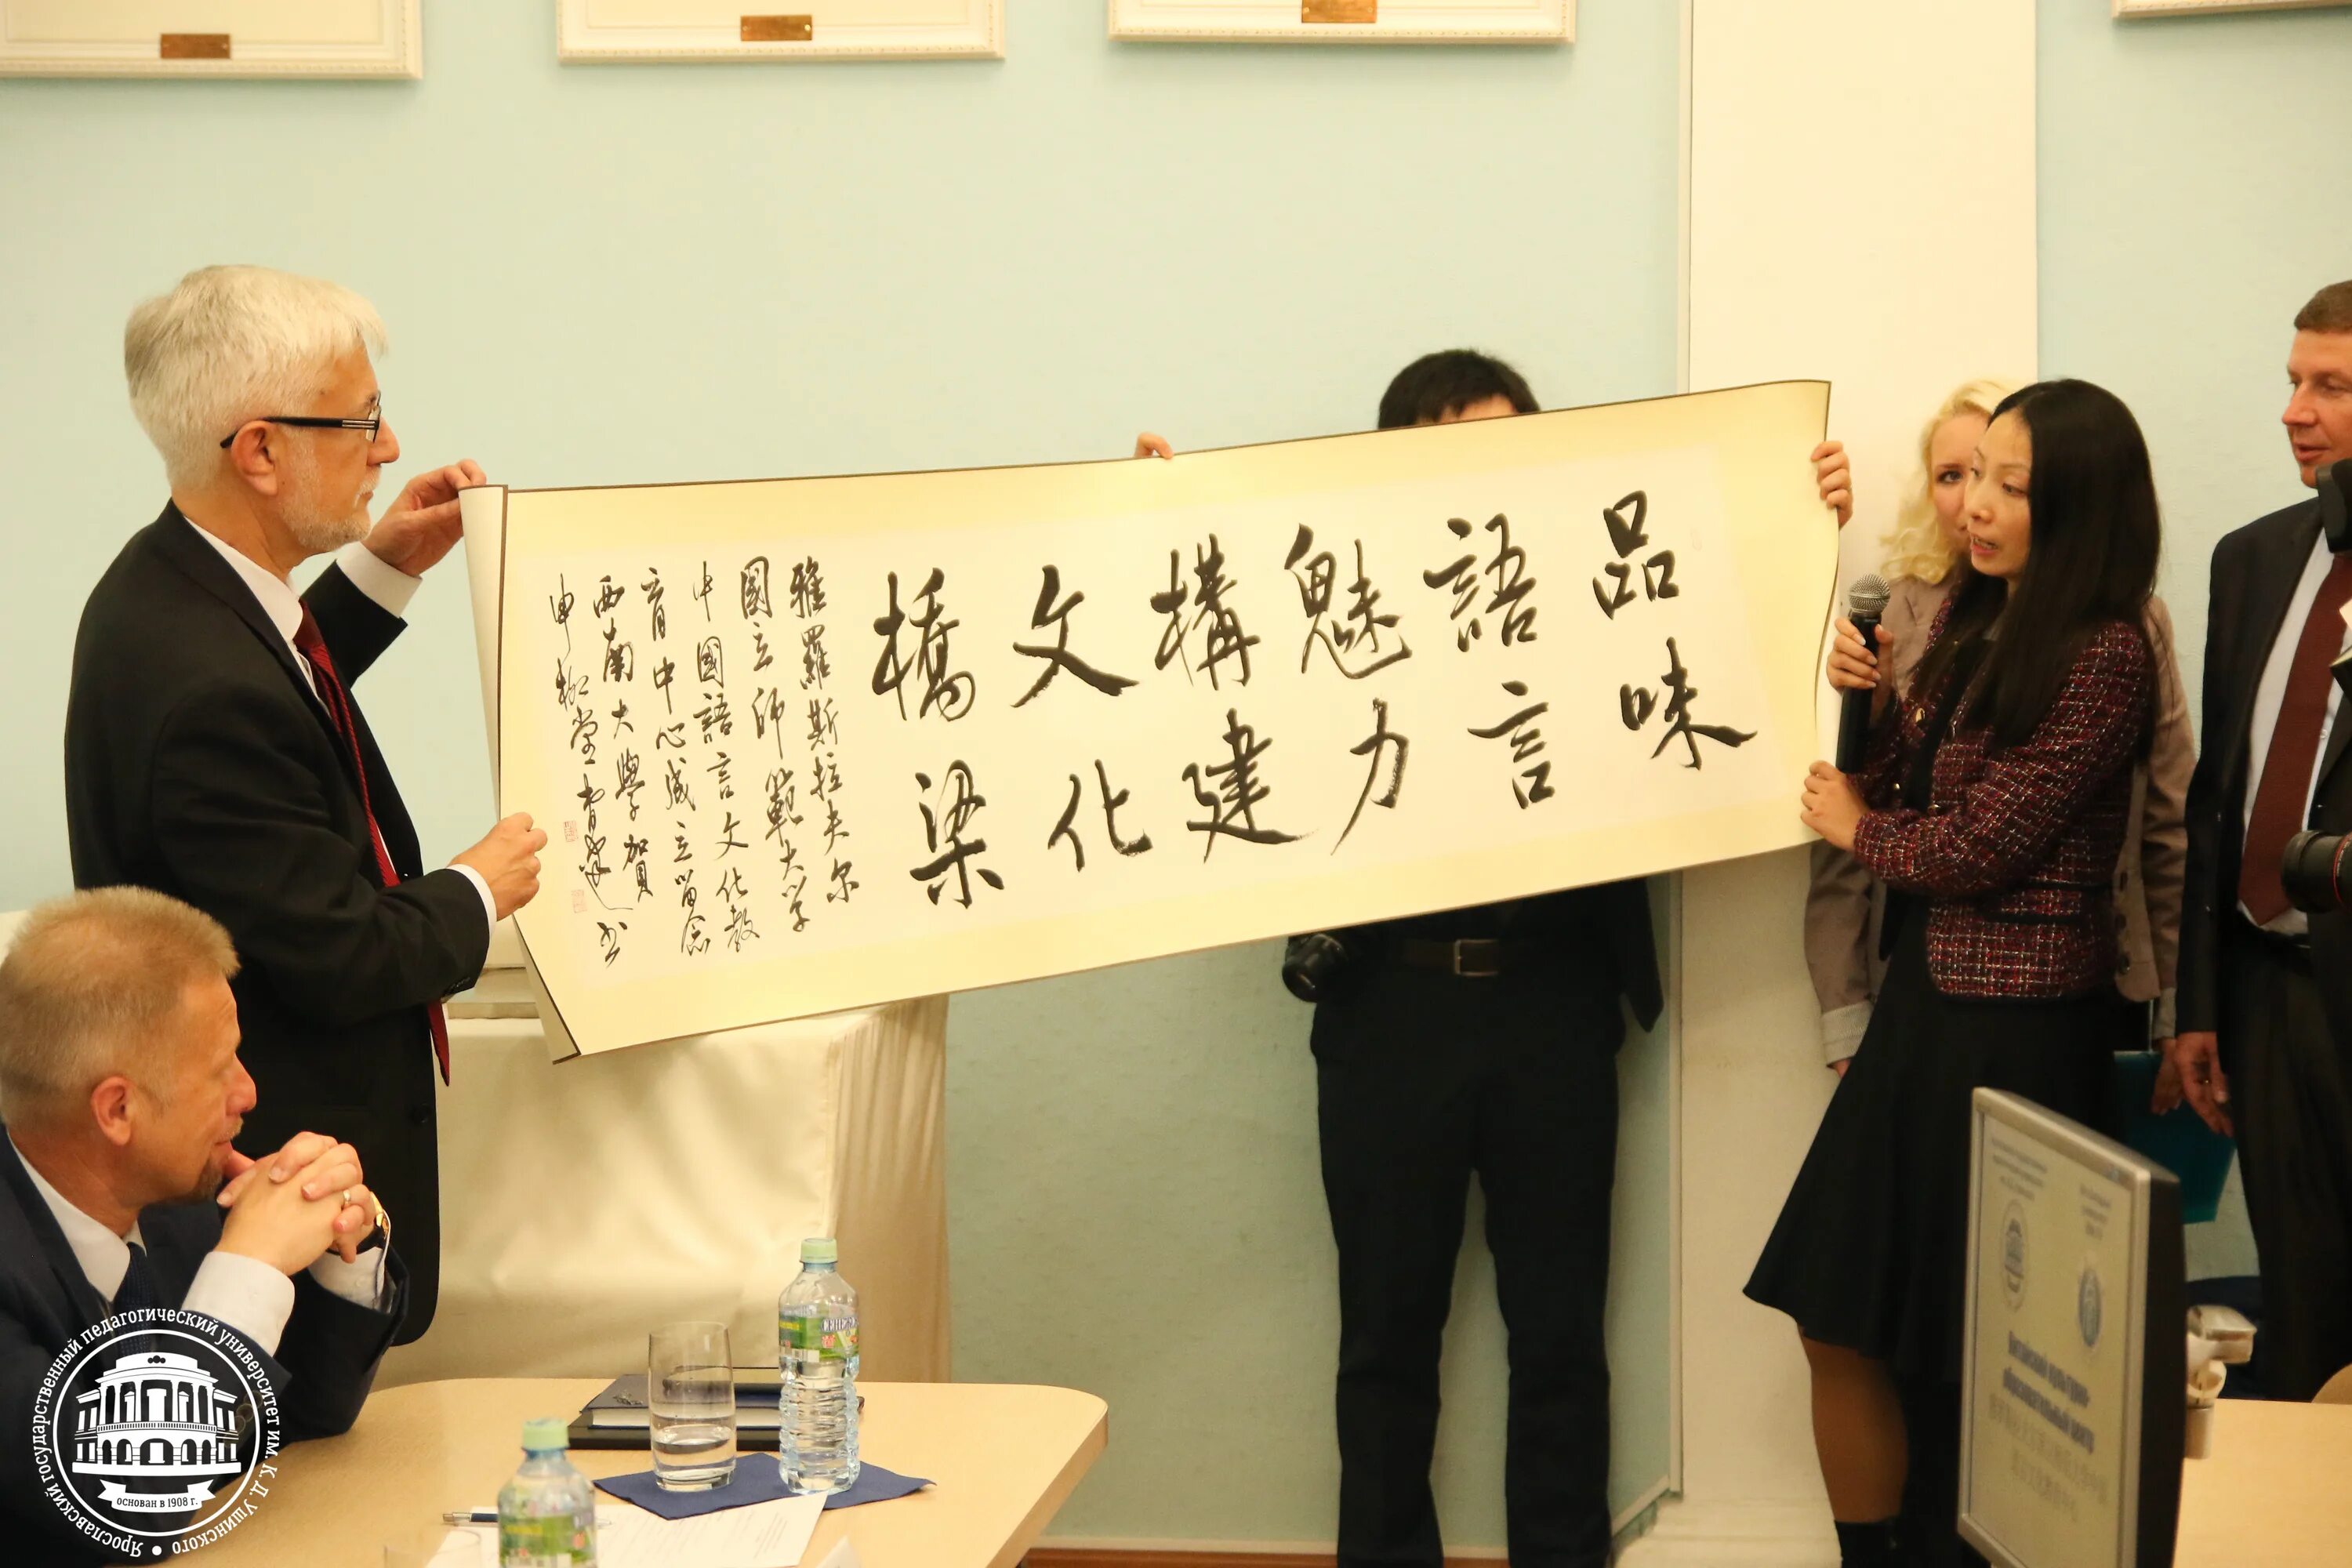 品味
語言
魅力
構建
文化
橋梁
雅羅斯拉夫尔
國立師範大学
中國語言文化教
育中心成立留念
西南大學賀
Ярославский государственный педагогический университет им. К. Д. Ушинского •
основан в 1908 г.